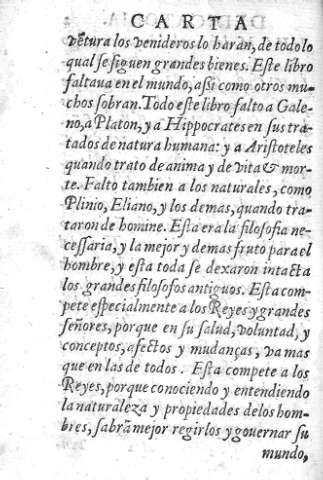 CARTA
vẽtura los venideros lo haràn, de todo lo
qual se siguen grandes bienes. Este libro
faltaua en el mundo, assi como otros mu-
chos sobran. Todo este libro falto a Gale-
no, a Platon, y a Hippocrates en sus tra-
tados de natura humana: y a Aristoteles
quando trato de anima y de vita & mor-
te. Falto tambien a los naturales, como
Plinio, Eliano, y los demas, quando tra-
taron de homine. Esta era la filosofia ne-
cessaria, y la mejor y de mas fruto para el
hombre, y esta toda se dexaron intacta
los grandes filosofos antiguos. Esta com-
pete especialmente a los Reyes y grandes
señores, porque en su salud, voluntad, y
conceptos, afectos y mudanças, va mas
que en las de todos. Esta compete a los
Reyes, porque conociendo y entendiendo
la naturaleza y propiedades de los hom-
bres, sabrã mejor regirlos y gouernar su
mundo,